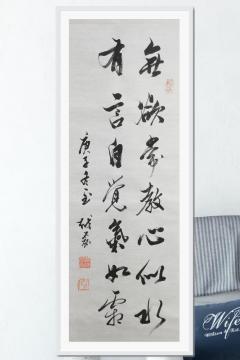 無欲常教心似水
有言自覺氣如霜
庚子冬至
Wife